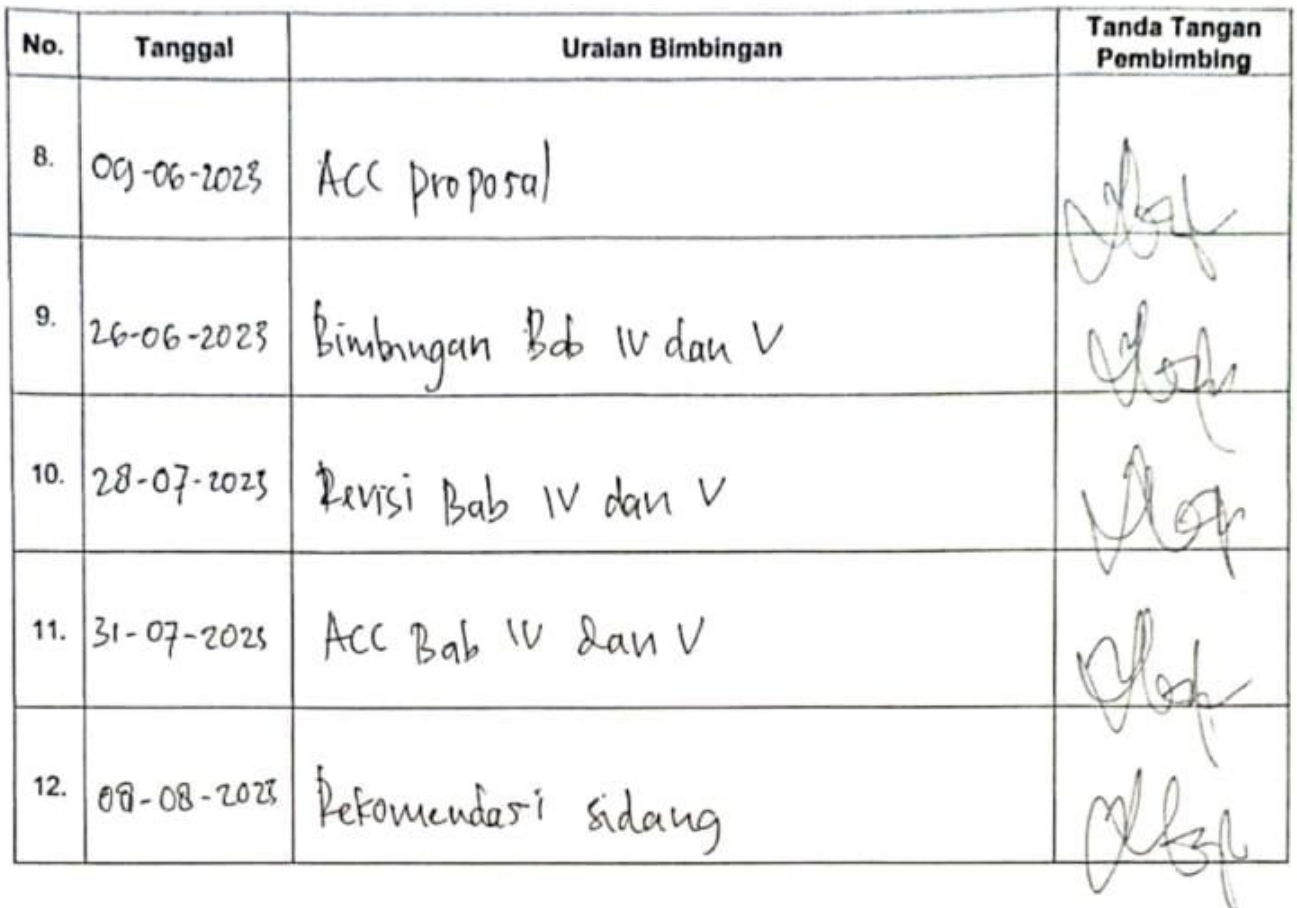 No. Tanggal Uraian Bimbingan Tanda Tangan
Pembimbing
8. 09-06-2023 ACC proposal
9. 26-06-2023 Bimbingan Bab IV dan V
10. 28-07-2023 Revisi Bab IV dan V
11. 31-07-2023 ACC Bab IV dan V
12. 08-08-2023 Rekomendasi sidang